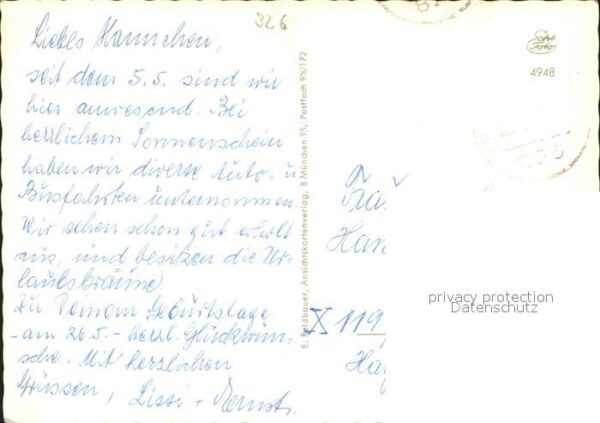 326
Liebes Hannchen,
seit dem 5.5. sind wir
hier anwesend. Bei
herrlichem Sonnenschein
haben wir diverse Auto- u.
Busfahrten unternommen.
Wir sehen schon gut erholt
aus, und besitzen die Ur-
laubsbräune.
Zu Deinem Geburtstage
- am 26.5. - herzl. Glückwün-
sche. Mit herzlichen
Grüssen, Lissi +
E. Feldbauer, Ansichtskartenverlag, 8 München 95, Postfach 950172
4948
Frau
Han
X 119
privacy protection
Datenschutz